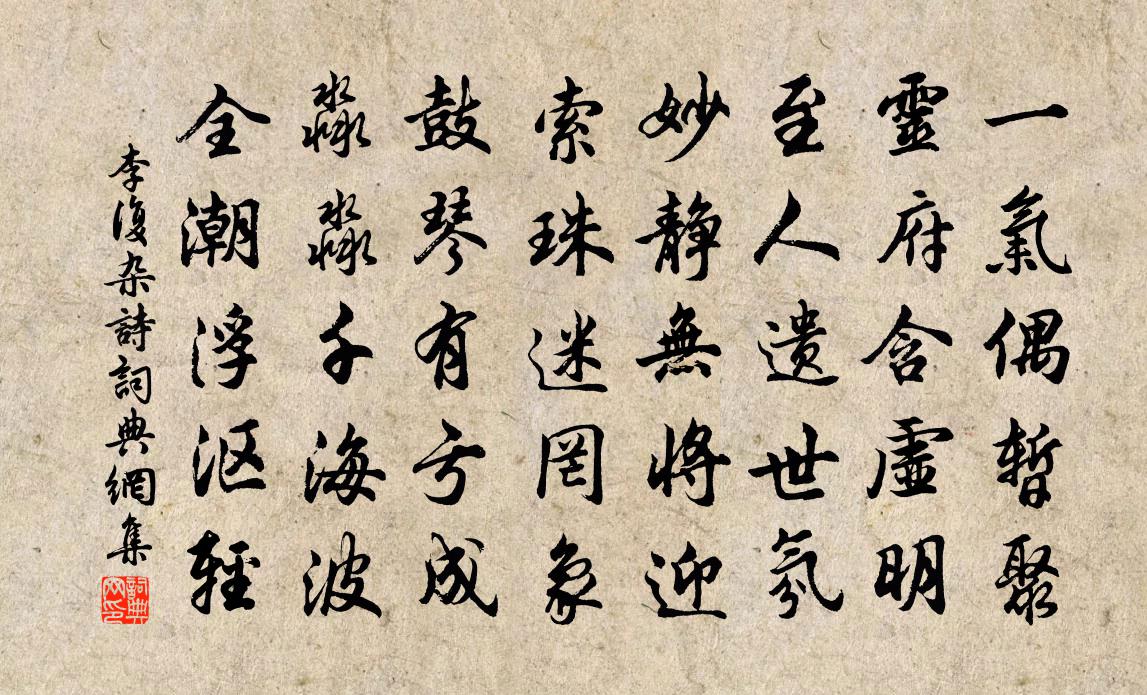 一氣偶暫聚
靈府含虛明
至人遺世氛
妙靜無將迎
索珠迷罔象
鼓琴有亏成
淼淼千海波
全潮浮沤輕
李復杂詩詞典網集
詞典
网印